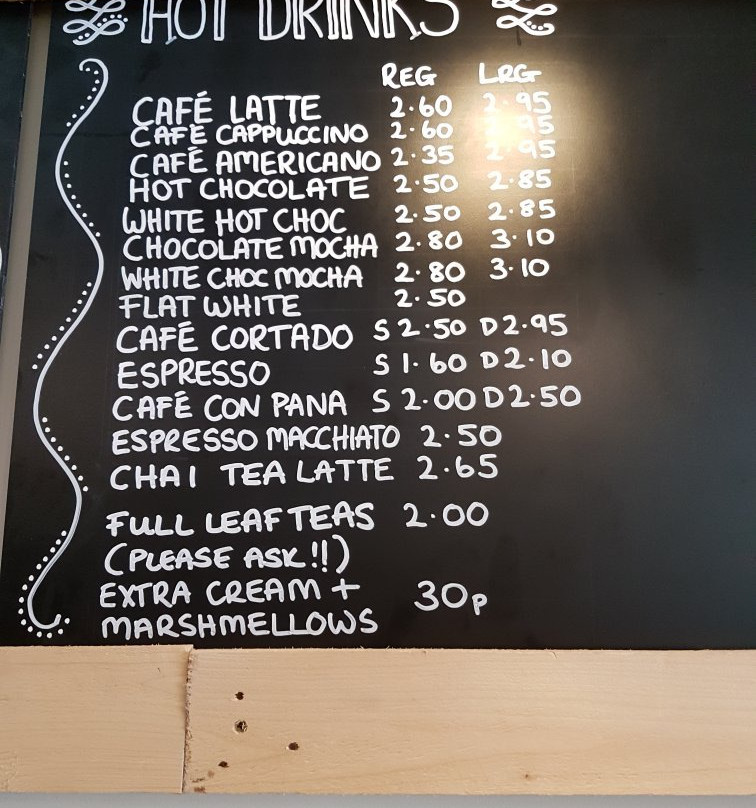 HOT DRINKS
REG LRG
CAFÉ LATTE 2.60 2.95
CAFÉ CAPPUCCINO 2.60 2.95
CAFÉ AMERICANO 2.35 2.95
HOT CHOCOLATE 2.50 2.85
WHITE HOT CHOC 2.50 2.85
CHOCOLATE MOCHA 2.80 3.10
WHITE CHOC MOCHA 2.80 3.10
FLAT WHITE 2.50
CAFÉ CORTADO S 2.50 D 2.95
ESPRESSO S 1.60 D 2.10
CAFÉ CON PANA S 2.00 D 2.50
ESPRESSO MACCHIATO 2.50
CHAI TEA LATTE 2.65
FULL LEAF TEAS 2.00
(PLEASE ASK!!)
EXTRA CREAM + 30p
MARSHMELLOWS